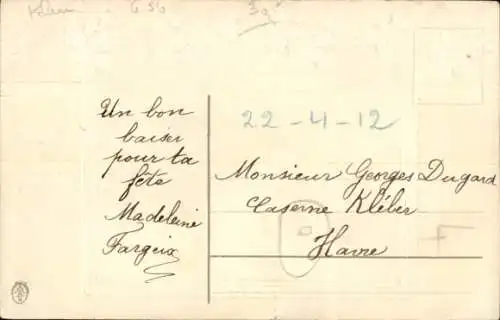 Un bon
baiser
pour ta
fête
Madeleine
22-4-12
Monsieur Georges Dugard
Caserne Kléber
Havre